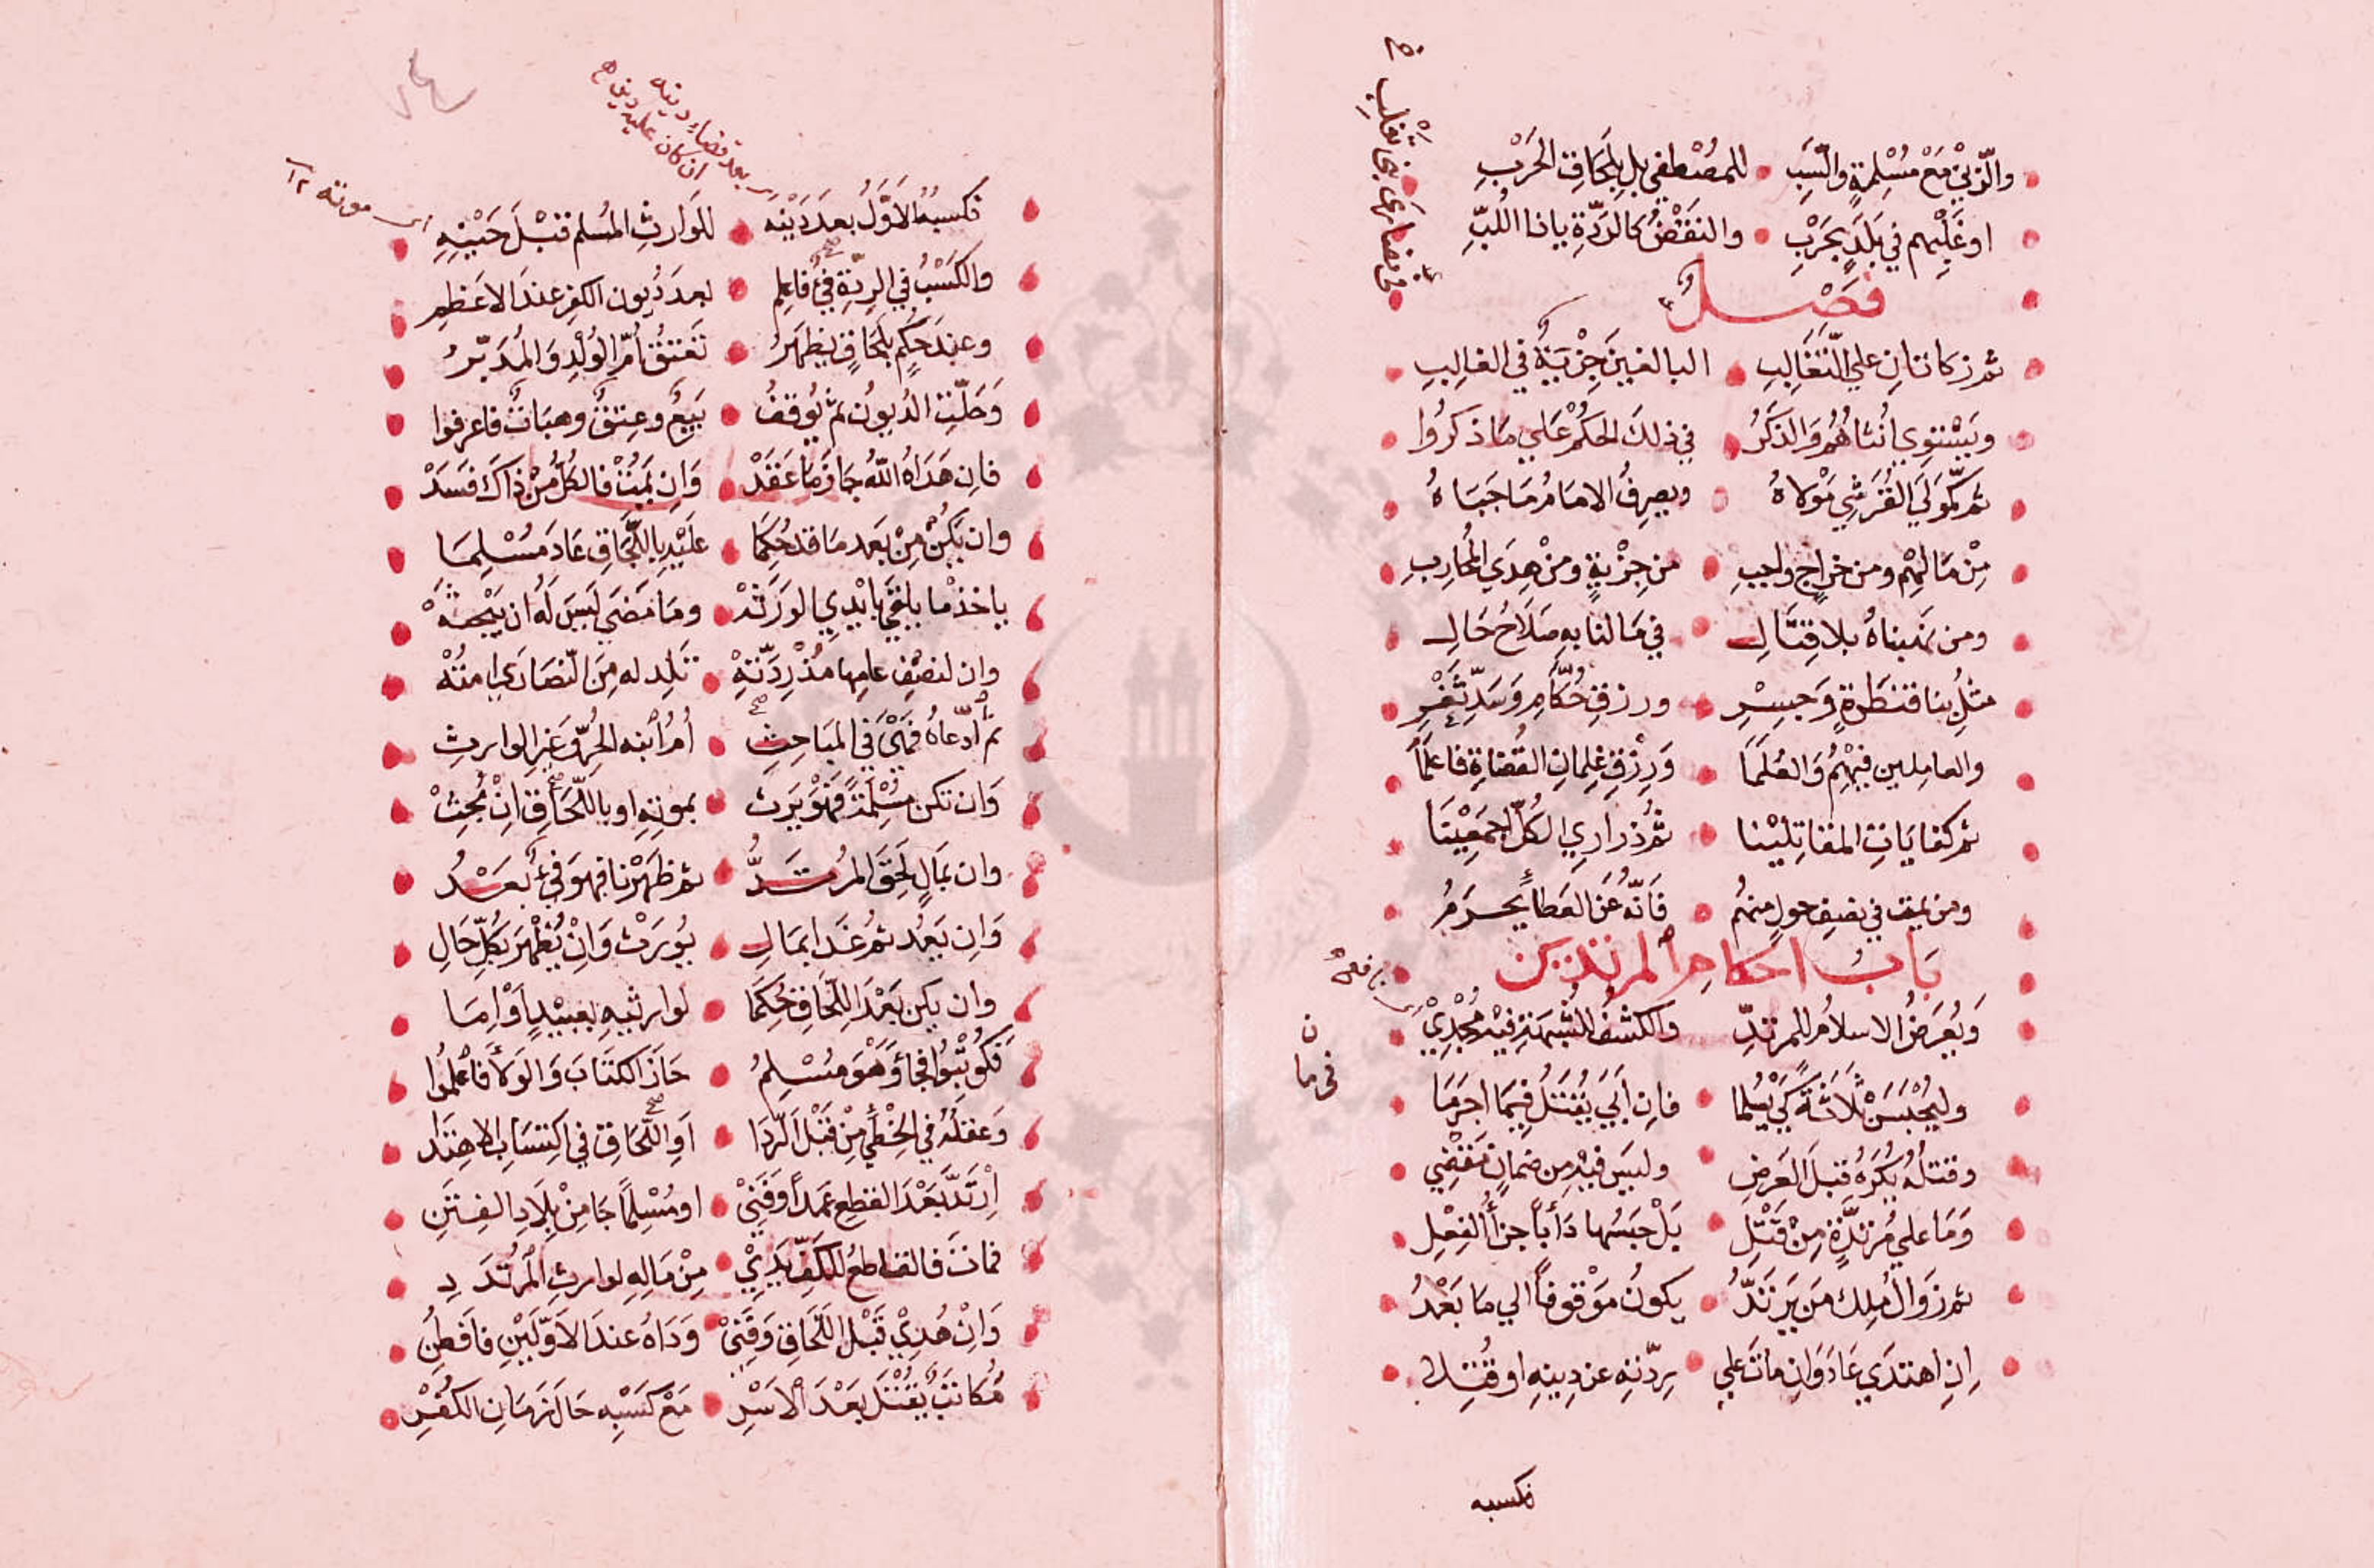 والزني مع مسلمة والسب للمصطفي بل بلحاق الحرب
او غلبهم في بلد بحرب والنقض كالردة يا ذا اللب
فصل
ثم زكاتان علي التغالب البالغين جزية في الغالب
ويستوي انثاهم والذكر في ذلك الحكم علي ما ذكروا
ثم كمولي القرشي مولاه ويصرف الامام ما جباه
من مالهم ومن خراج واجب من جزية ومن هدي المحارب
ومن نهبناه بلا قتال في ما لنا به صلاح حال
مثل بنا قنطرة وجسر ورزق حكام وسد ثغر
والعاملين فيهم والعلما ورزق غلمان القضاة فاعلما
ثم كفايات المقاتلينا ثم ذراري الكل اجمعينا
ومن يمت في نصف حول منهم فانه عن العطا يحرم
باب احكام المرتدين
ويعرض الاسلام للمرتد والكشف للشبهة فيه مجدي
وليحبسن ثلاثة كي يسلما فان ابي يقتل فيما اجرما
وقتله يكره قبل العرض وليس فيه من ضمان نقضي
وما علي مرتدة من قتل بل حبسها دأبا جزأ الفعل
ثم زوال ملك من يرتد يكون موقوفا الي ما بعد
ان اهتدي عاد وان مات علي ردته عن دينه او قتلا
فكسبه
في نصارى بني تغلب
فكسبه الاول بعد دينه للوارث المسلم قبل حينه
والكسب في الردة فيء فاعلم بعد ديون الكفر عند الاعظم
وعند حكم بلحاق يظهر تعتق ام الولد والمدبر
وحلت الديون ثم يوقف بيع وعتق وهبات فاعرفوا
فان هداه الله جاز ما عقد وان يمت فالكل من ذاك فسد
وان يكن من بعد ما قد حكما عليه باللحاق عاد مسلما
ياخذ ما يلقي بايدي الورثه وما مضي ليس له ان يبحثه
وان لنصف عامها مذ ردته تلد له من النصاري امته
ثم ادعاه فهي في المباحث ام ابنه الحر وغير الوارث
وان تكن مسلمة فهو يرث بموته او باللحاق ان بحث
وان بمال لحق المرتد ثم ظهرنا فهو فيء بعد
وان يعد ثم غدا بمال يورث وان يظهر بكل حال
وان يكن بعد اللحاق حكما لوارثيه بعبيد او اما
فكوتبوا فجا وهو مسلم حاز الكتاب والولا فاعلموا
وعقله في الخطأ من قبل الردا او اللحاق في اكتساب الاهتدا
ارتد بعد القطع عمدا وفني او مسلما جا من بلاد الفتن
فمات فالقاطع للكف يدي من ماله لوارث المرتدد
وان هدي قبل اللحاق وفني وداه عند الاولين فافطن
مكاتب يقتل بعد الاسر مع كسبه حال زمان الكفر
بعد قضاء دينه
ان كان عليه دين
موته